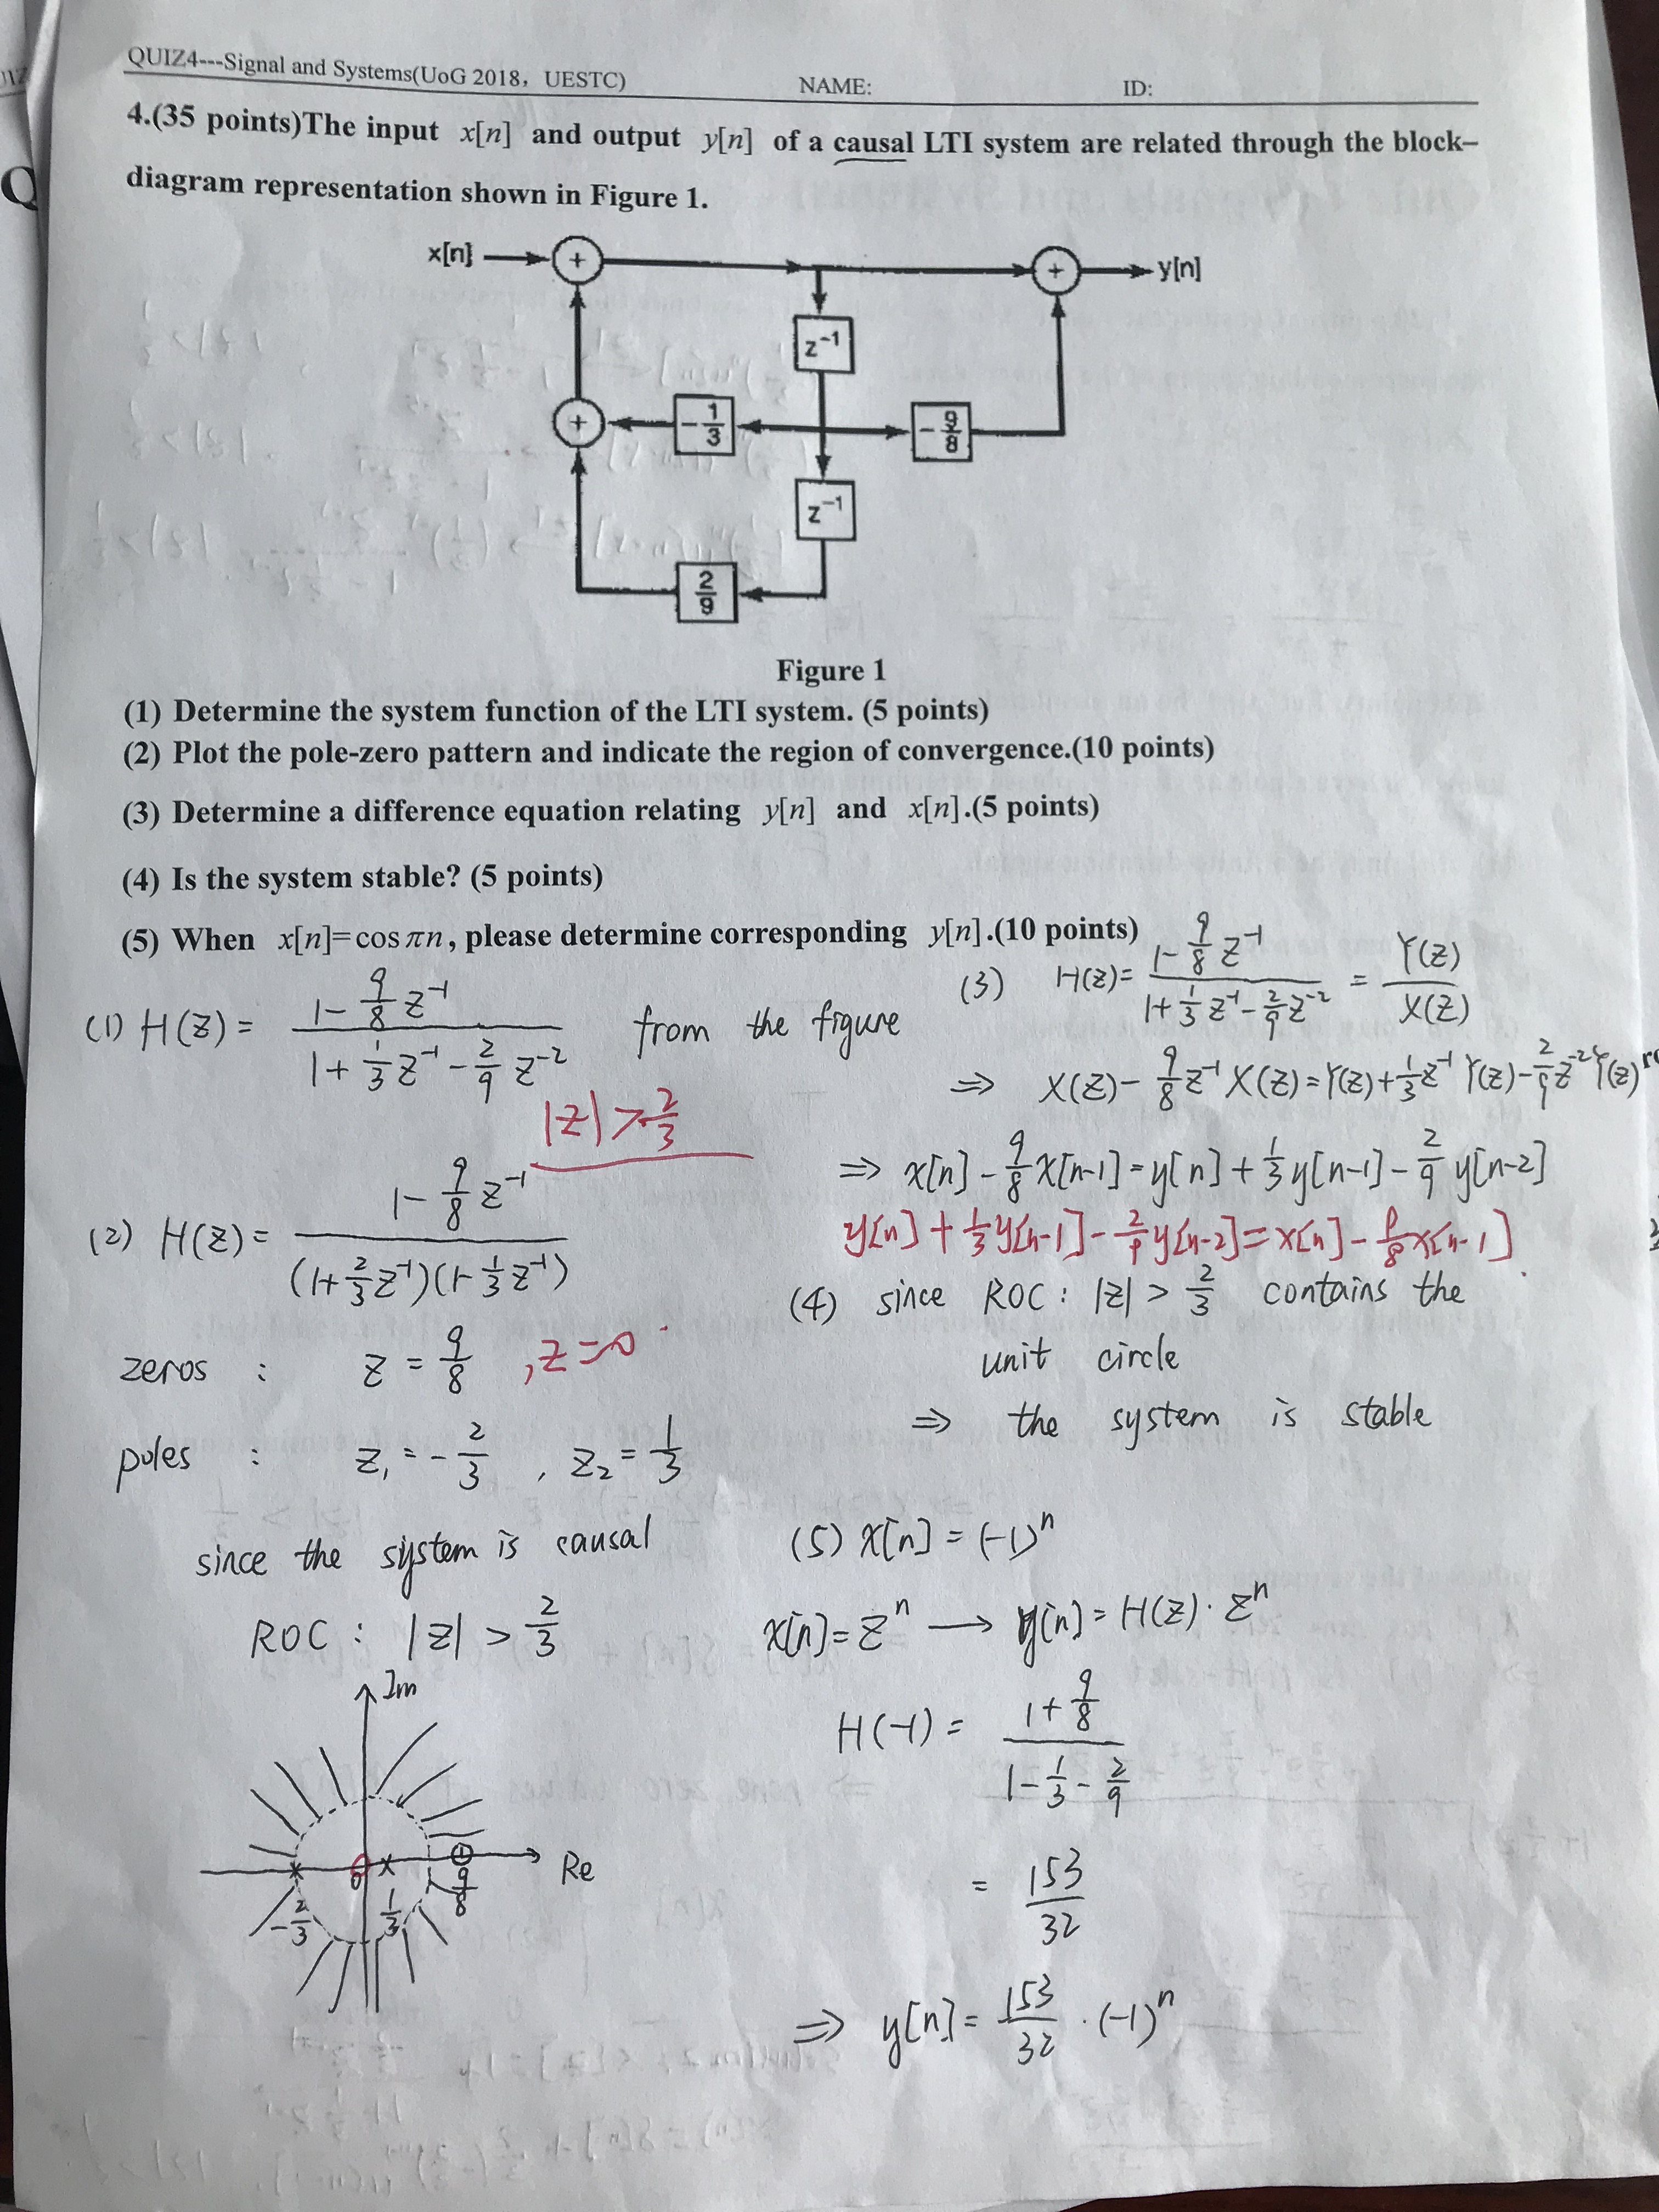 QUIZ4---Signal and Systems(UoG 2018，UESTC) NAME: ID:
4.(35 points)The input x[n] and output y[n] of a causal LTI system are related through the block–
diagram representation shown in Figure 1.
x[n] + + y[n]
z⁻¹
+ -1/3 -9/8
z⁻¹
2/9
Figure 1
(1) Determine the system function of the LTI system. (5 points)
(2) Plot the pole-zero pattern and indicate the region of convergence.(10 points)
(3) Determine a difference equation relating y[n] and x[n].(5 points)
(4) Is the system stable? (5 points)
(5) When x[n]=cos πn, please determine corresponding y[n].(10 points)
(1) H(z) = (1 - 9/8 z⁻¹) / (1 + 1/3 z⁻¹ - 2/9 z⁻²) from the figure
|z| > 2/3
(2) H(z) = (1 - 9/8 z⁻¹) / ((1 + 2/3 z⁻¹)(1 - 1/3 z⁻¹))
zeros : z = 9/8 , z = 0
poles : z₁ = -2/3 , z₂ = 1/3
since the system is causal
ROC : |z| > 2/3
Im
Re
-2/3 1/3 9/8
(3) H(z) = (1 - 9/8 z⁻¹) / (1 + 1/3 z⁻¹ - 2/9 z⁻²) = Y(z) / X(z)
⇒ X(z) - 9/8 z⁻¹ X(z) = Y(z) + 1/3 z⁻¹ Y(z) - 2/9 z⁻² Y(z)
⇒ x[n] - 9/8 x[n-1] = y[n] + 1/3 y[n-1] - 2/9 y[n-2]
y[n] + 1/3 y[n-1] - 2/9 y[n-2] = x[n] - 9/8 x[n-1]
(4) since ROC : |z| > 2/3 contains the
unit circle
⇒ the system is stable
(5) x[n] = (-1)ⁿ
x[n] = zⁿ → y[n] = H(z) · zⁿ
H(-1) = (1 + 9/8) / (1 - 1/3 - 2/9)
= 153/32
⇒ y[n] = 153/32 · (-1)ⁿ